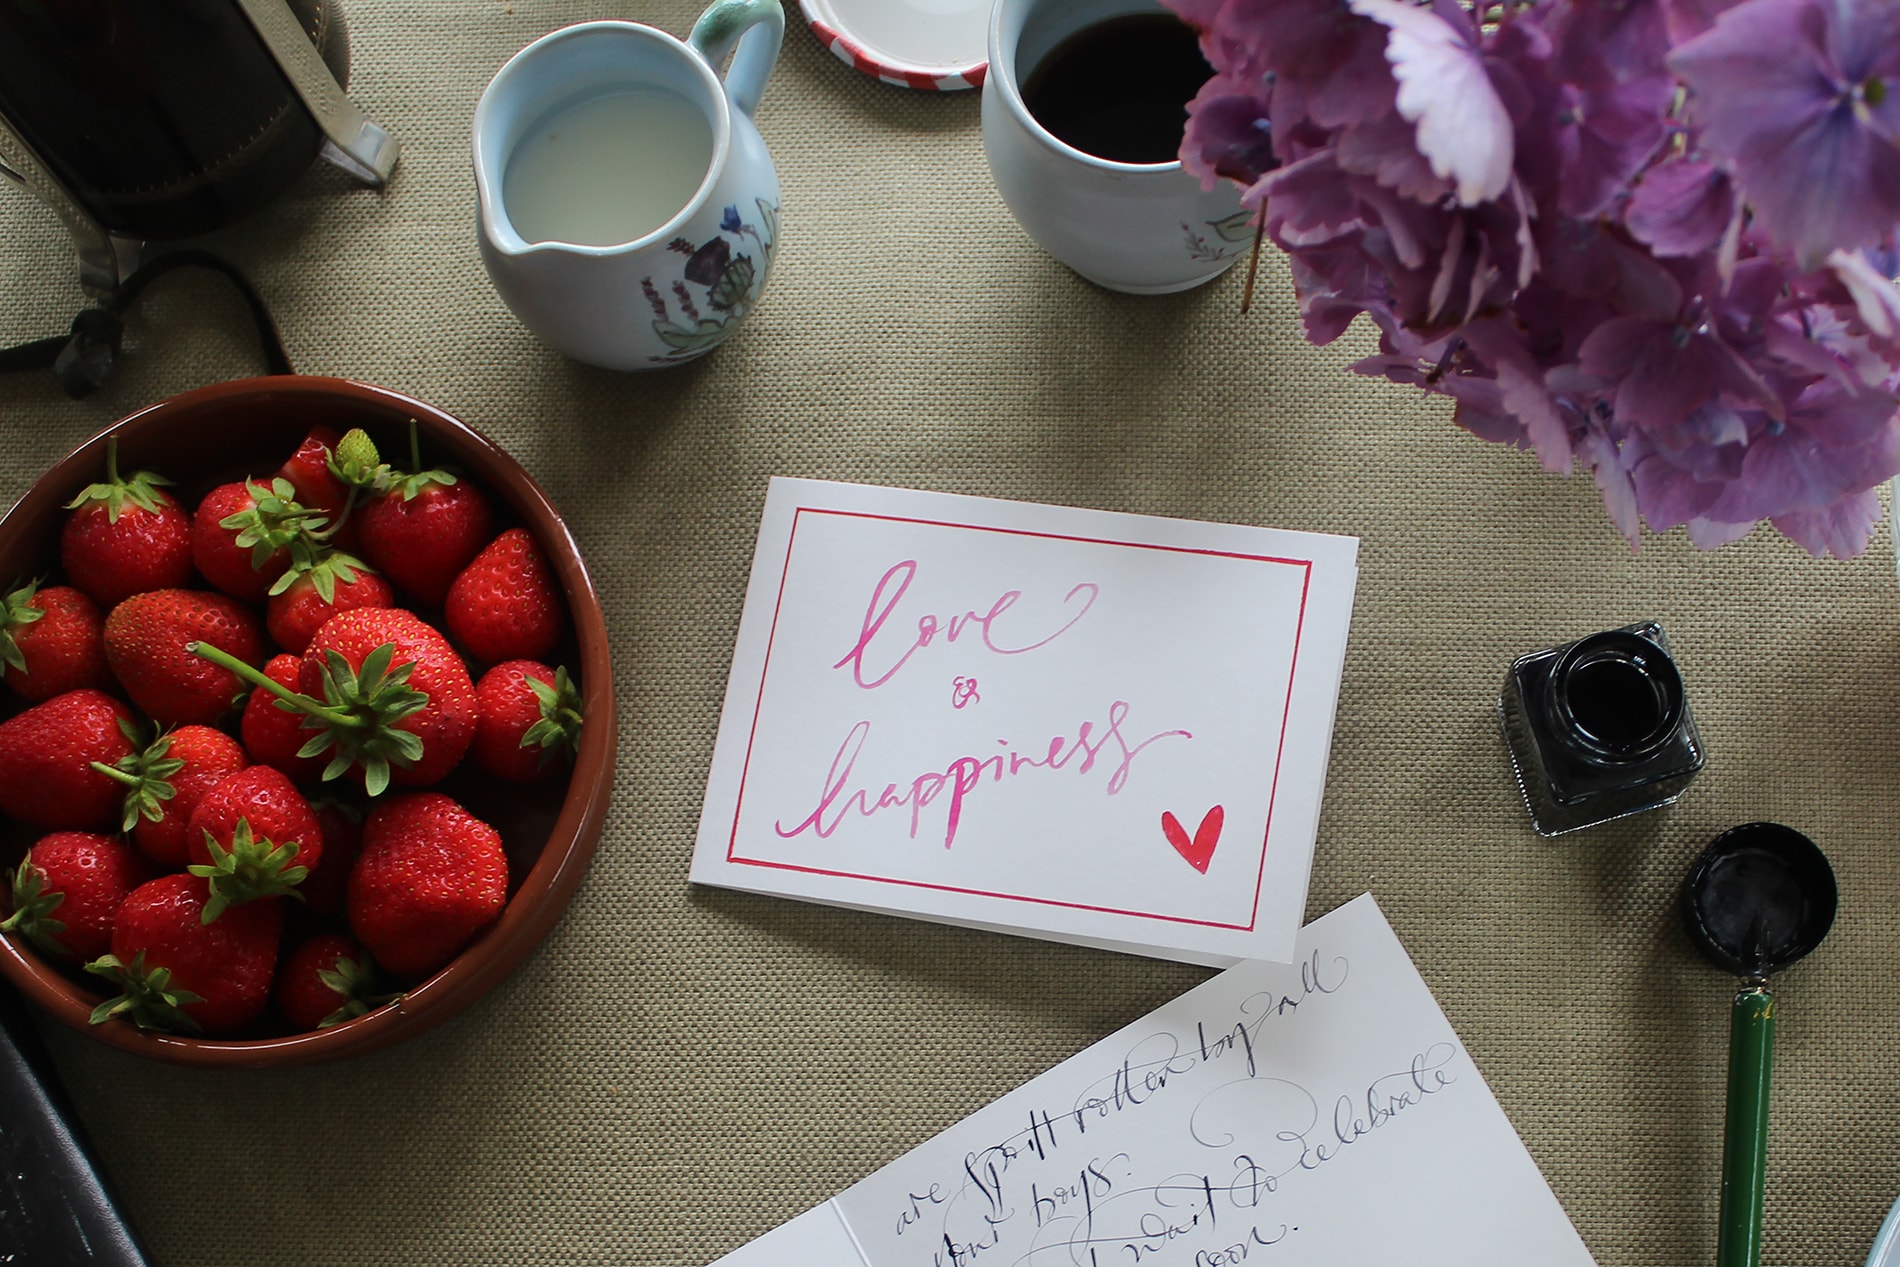 love
&
happiness
are spoilt rotten by all
your boys.
wait to celebrate
soon.